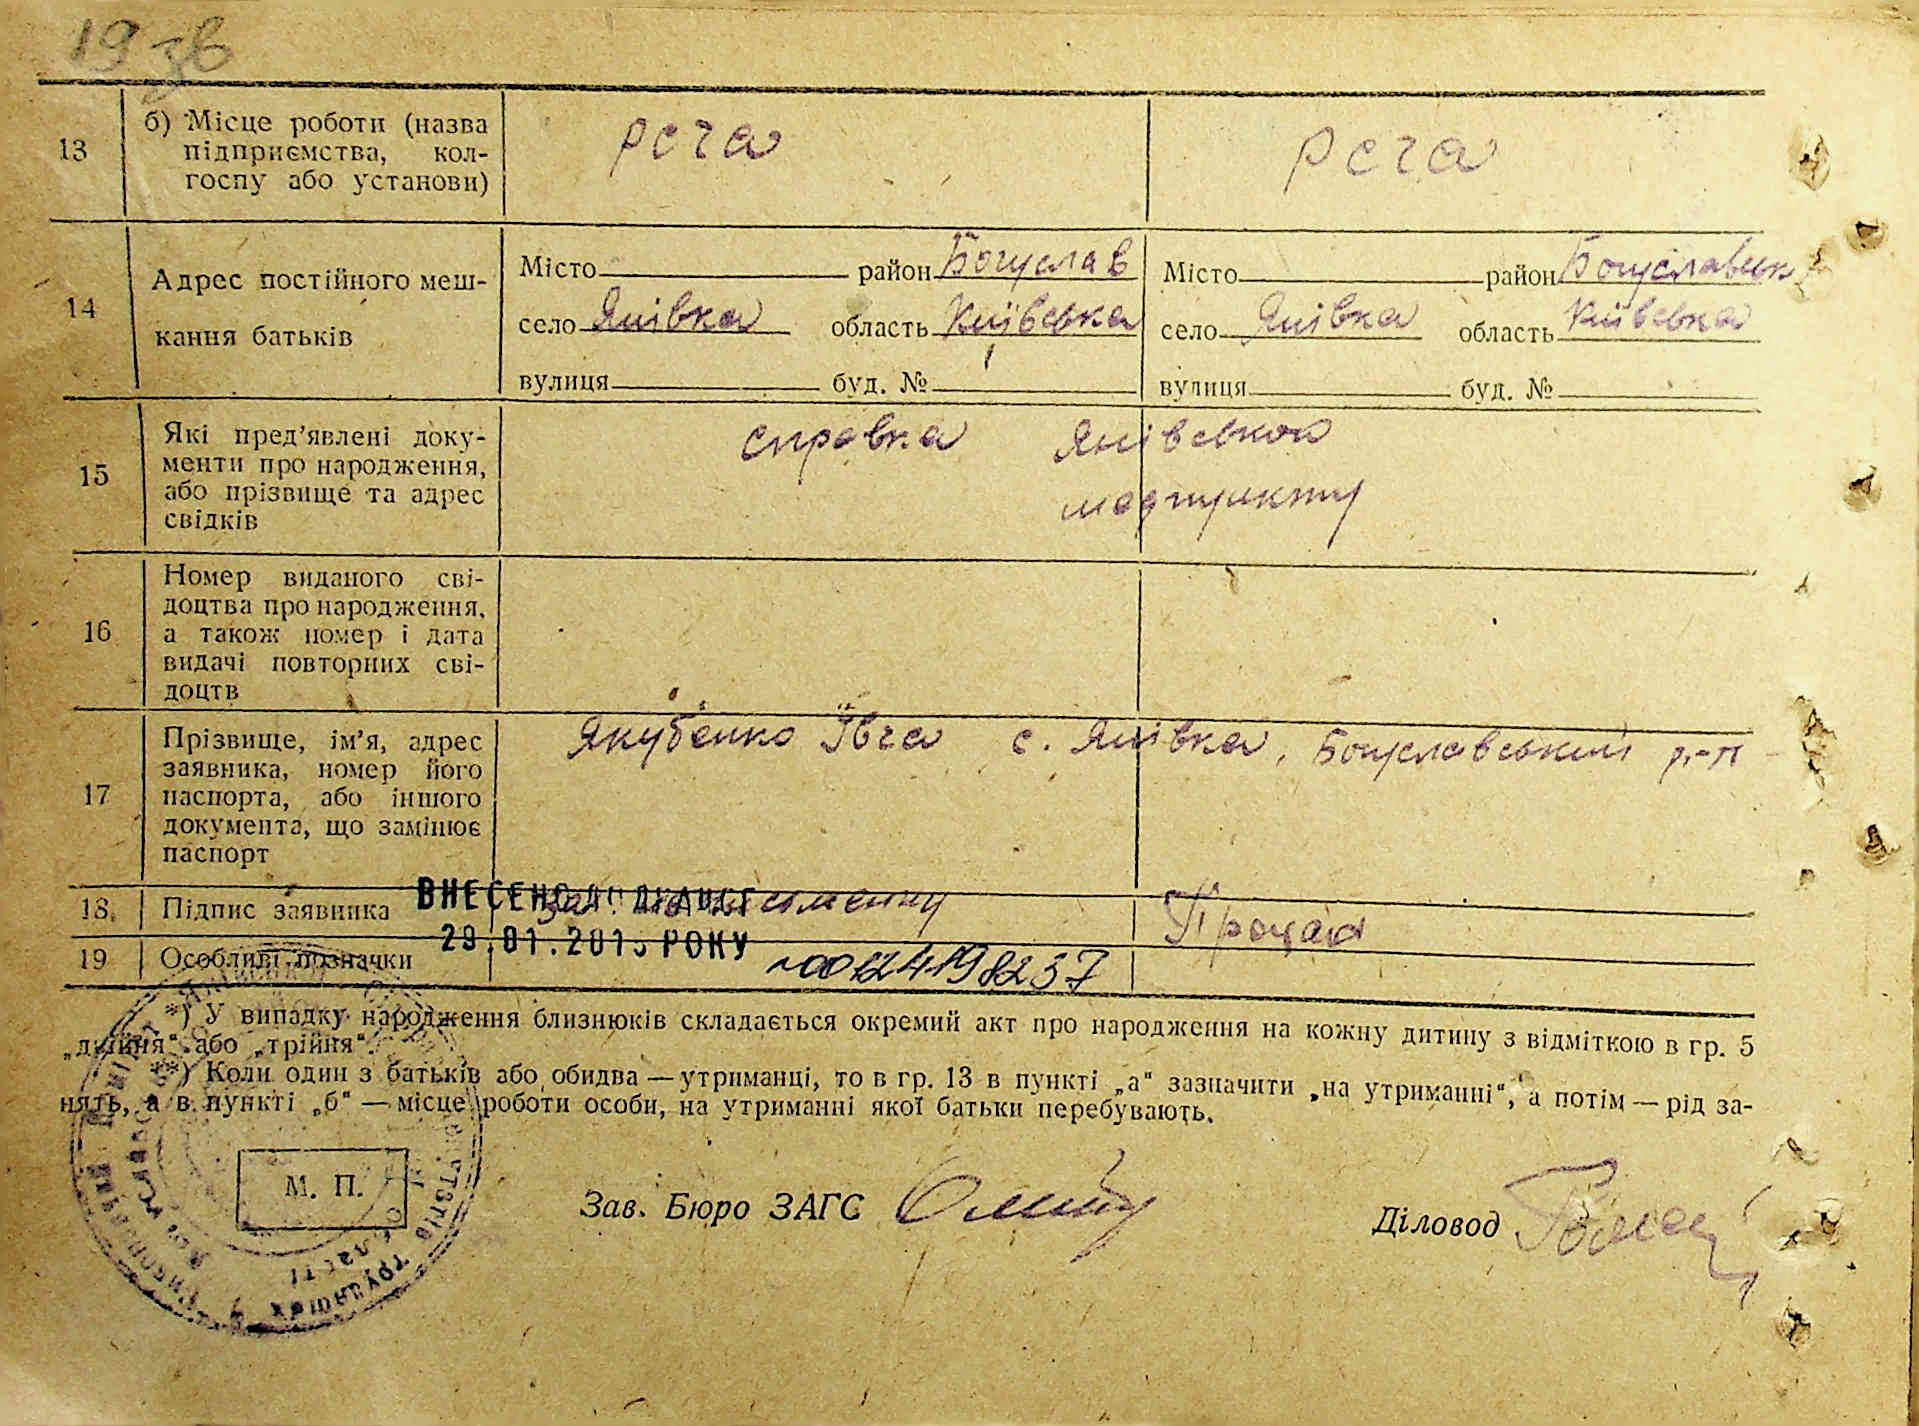 13 б) Місце роботи (назва
підприємства, кол-
госпу або установи)
рсча рсча
14 Адрес постійного меш-
кання батьків
Місто район Богуслав Місто район Богуславськ
село Янівка область Київська село Янівка область Київська
вулиця буд. № вулиця буд. №
15 Які пред’явлені доку-
менти про народження,
або прізвище та адрес
свідків
справка Янівською
медпункту
16 Номер виданого сві-
доцтва про народження,
а також номер і дата
видачі повторних сві-
доцтв
17 Прізвище, ім’я, адрес
заявника, номер його
паспорта, або іншого
документа, що замінює
паспорт
Якубенко Івга с. Янівка, Богуславський р-н
18. Підпис заявника
ВНЕСЕНО ДО ДРАЦСГ
29.01.2015 РОКУ
19 Особливі позначки
00124198237
*) У випадку народження близнюків складається окремий акт про народження на кожну дитину з відміткою в гр. 5
„двійня“ або „трійня“.
**) Коли один з батьків або обидва — утриманці, то в гр. 13 в пункті „а“ зазначити „на утриманні“, а потім — рід за-
нять, а в пункті „б“ — місце роботи особи, на утриманні якої батьки перебувають.
М. П.
Зав. Бюро ЗАГС
Діловод